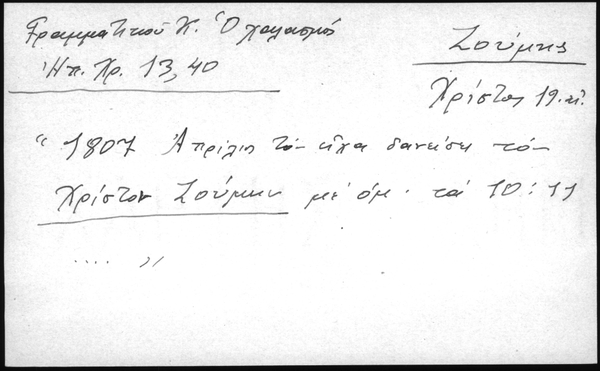 Γραμματικού Κ. Ὁ χαλασμός
Ἠπ. Χρ. 13, 40
Ζούμης
Χρίστος 19. αἰ.
"1807 Ἀπρίλιος τόν εἶχα δανείσει τόν
Χρίστον Ζούμην μέ ὁμ. τά 10:11
.... "